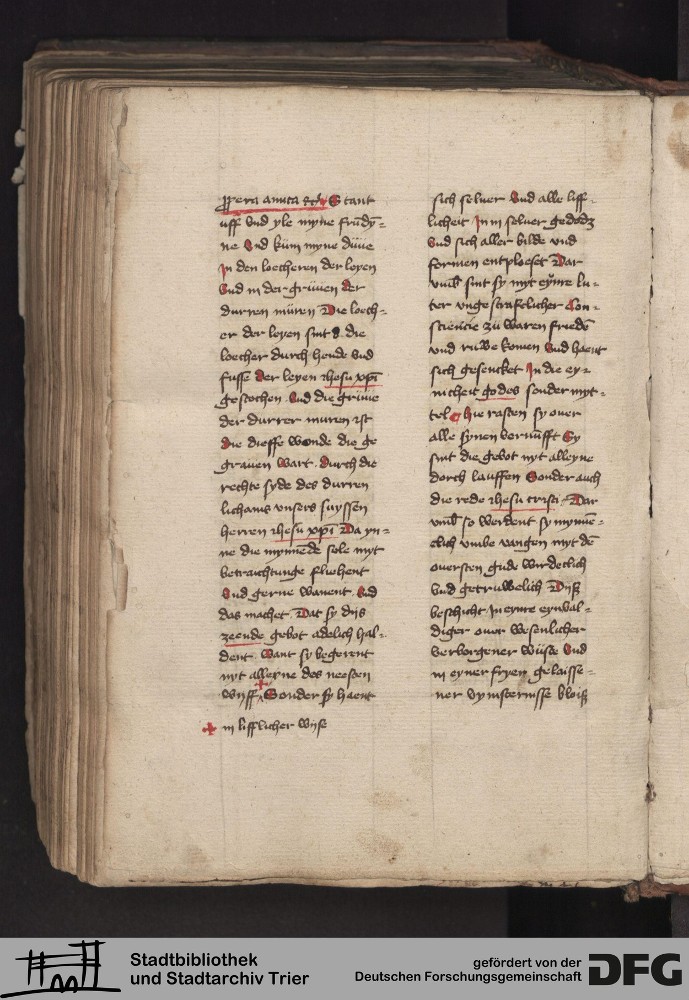 ppera amica etc Stant
uff vnd yle myne frūdy-
ne Vnd kūm myne duue
In den loecheren der leyen
Vnd in der gruuen der
durren muren Die loech-
er der leyen sint die
loecher durch hende vnd
fusse der leyen ihesu xpi
gestochen Vnd die gruue
der durrer muren ist
Die dieffe wonde die ge
grauen wart Durch die
rechte syde des durren
lichams vnsers suyssen
herren ihesu xpi Da yn-
ne die mynnēde sele myt
betraichtunge fliehent
Vnd gerne wanent Vnd
das machet Dat sy dijs
zeende gebot adelich hal-
dent Want sy begerent
nyt alleyne des neesten
wyff Sonder sy haent
in lifflicher wyse
sich seluer Vnd alle liff-
licheit In in seluer gedodz
Vnd sich aller bilde vnd
formen entploeset Dar
vmb sint sy myt eyme lu-
ter vngestraflicher Con-
sciencie zu waren friedē
vnd ruwe komen Vnd haent
sich gesencket In die ey-
nicheit godes sonder myt-
tel Hie rasten sy ouer
alle synen vernūfft Sy
sint die gebot nyt alleyne
dorch lauffen Sonder auch
die rede ihesu cristi Dar
vmb so werdent sy mynnē-
clich vmbe vangen myt dē
ouersten gude wirdeclich
Vnd getruwelich Dijß
beschicht In eyme eynual-
diger ouer wesenlicher
verborgener wüste Vnd
in eyner fryen gelaisse-
ner vynsternisse bloiß
Stadtbibliothek
und Stadtarchiv Trier
gefördert von der
Deutschen Forschungsgemeinschaft
DFG